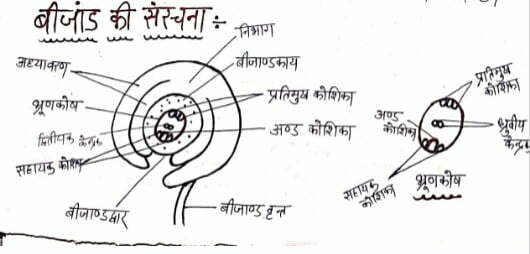 बीजांड की संरचना ÷
निभाग
अध्यावरण
बीजाण्डकाय
भ्रूणकोष
प्रतिमुख कोशिका
द्वितीयक केन्द्रक
अण्ड कोशिका
सहायक कोशिका
बीजाण्डद्वार
बीजाण्ड वृन्त
प्रतिमुख
कोशिका
अण्ड
कोशिका
ध्रुवीय
केन्द्रक
सहायक
कोशिका
भ्रूणकोष